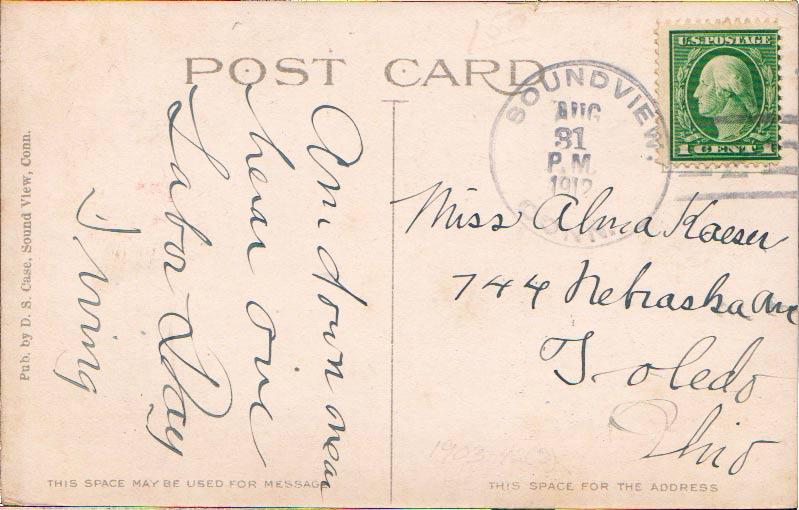 POST CARD
SOUNDVIEW
AUG
31
P.M.
1912
CONN.
U.S. POSTAGE
1 CENT 1
Pub. by D. S. Case, Sound View, Conn.
Am down near
here over
Labor Day
Irving
Miss Alma Kaeser
744 Nebraska Ave
Toledo
Ohio
THIS SPACE MAY BE USED FOR MESSAGE
THIS SPACE FOR THE ADDRESS